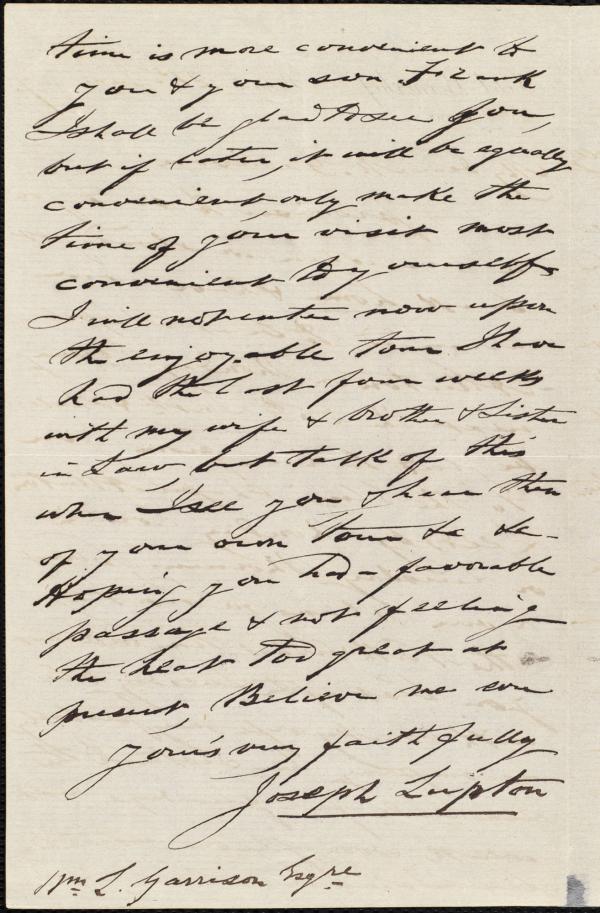 time is more convenient to
you & your son Frank
I shall be glad to see you,
but if later, it will be equally
convenient, only make the
time of your visit most
convenient to yourselfs
I will not enter now upon
the enjoyable tour I have
had the last four weeks
with my wife & brother & Sister
in Law, but talk of this
when I see you & hear then
of your own tour &c &c-
Hoping you had a favorable
passage & not feeling
the heat too great at
present, Believe me ever
your's very faithfully
Joseph Lupton
Wm L. Garrison Esqre